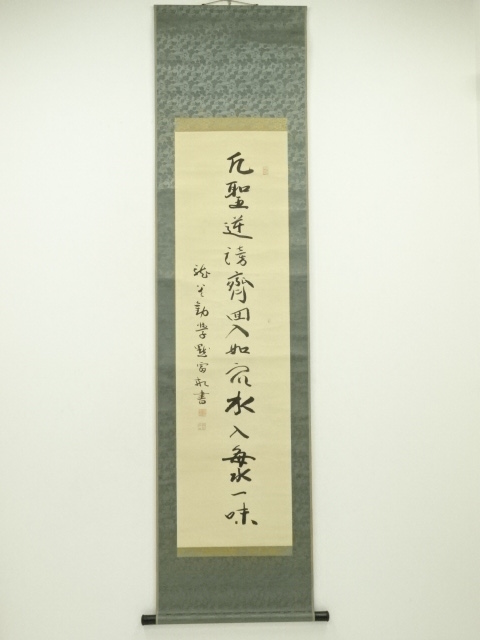 凡聖逆謗齊回入如衆水入海一味
勧学 書